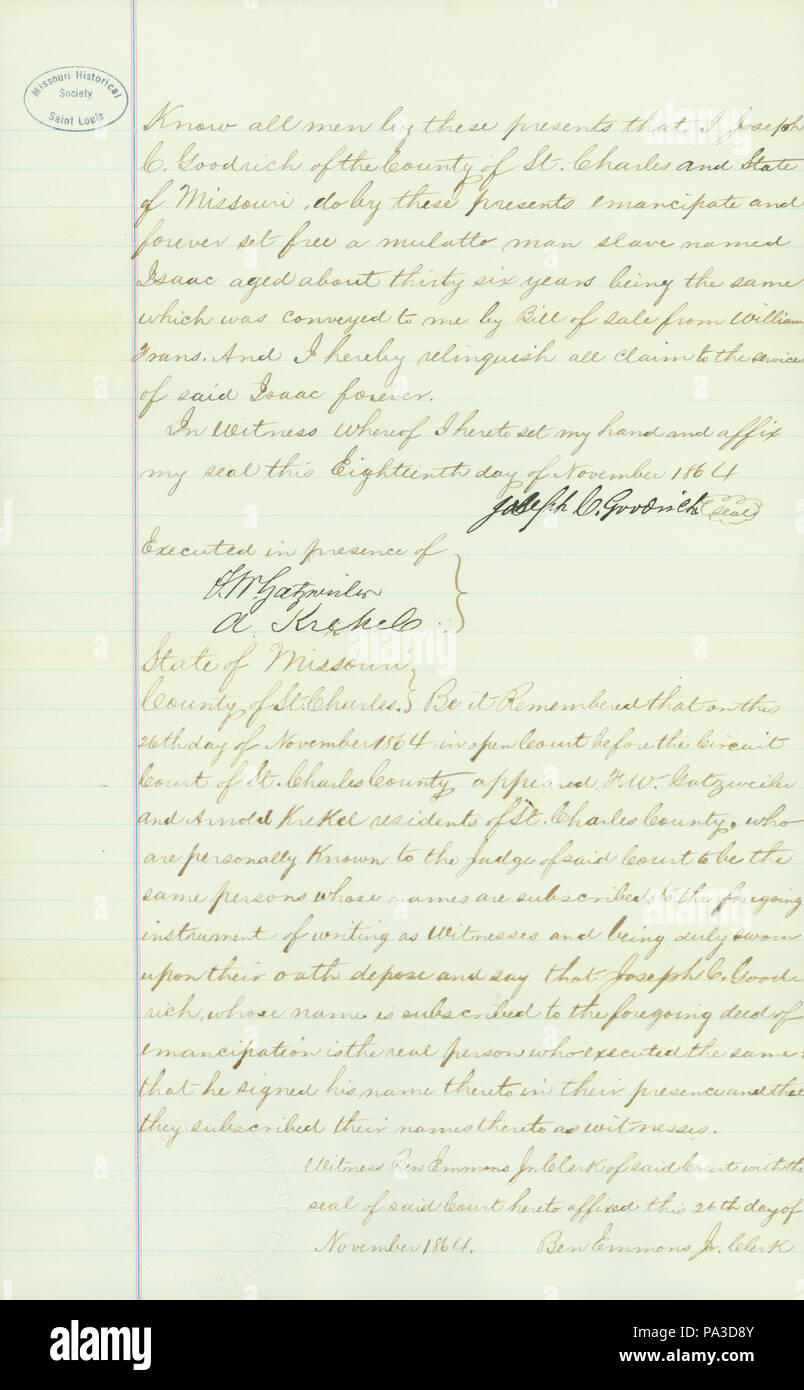 Missouri Historical
Society
Saint Louis
Know all men by these presents that I Joseph
C. Goodrich of the County of St. Charles and State
of Missouri, do by these presents emancipate and
forever set free a mulatto man slave named
Isaac aged about thirty six years being the same
which was conveyed to me by Bill of Sale from William
And I hereby relinquish all claim to the services
of said Isaac forever.
In Witness whereof I hereto set my hand and affix
my seal this Eighteenth day of November 1864
Joseph C. Goodrich (seal)
Executed in presence of
F. W. Gatzweiler
A. Krekel
State of Missouri
County of St. Charles. } Be it Remembered that on this
26th day of November 1864 in open Court before the Circuit
Court of St. Charles County appeared F. W. Gatzweiler
and Arnold Krekel residents of St. Charles County, who
are personally Known to the Judge of said Court to be the
same persons whose names are subscribed to the foregoing
instrument of writing as Witnesses and being duly sworn
upon their oath depose and say that Joseph C. Good-
rich, whose name is subscribed to the foregoing deed of
emancipation is the real person who executed the same:
that he signed his name thereto in their presence and that
they subscribed their names thereto as witnesses.
Witness Ben Emmons Jr. Clerk of said Court with the
seal of said Court hereto affixed this 26th day of
November 1864. Ben Emmons Jr. Clerk
alamy
Image ID: PA3D8Y
www.alamy.com